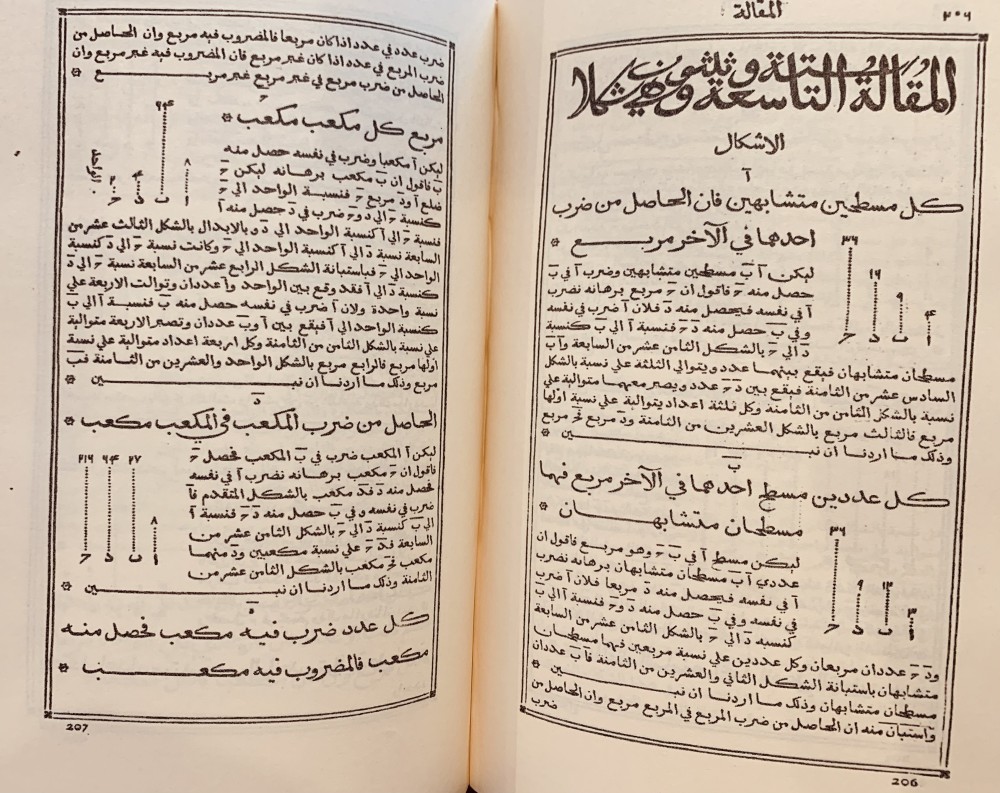 ٢٠٦
المقالة
المقالة التاسعة وهي ستة وثلثون شكلا
الاشكال
آ
كل مسطحين متشابهين فان الحاصل من ضرب
احدهما في الآخر مربع
٣٦
١٦
٩
٤
ا ب د ح
ليكن آ ب مسطحين متشابهين وضرب آ في ب
حصل منه ح فاقول ان ح مربع برهانه نضرب
آ في نفسه فيحصل منه د فلان آ ضرب
في نفسه وفي ب حصل منه د ح فنسبة آ الي ب كنسبة
د الي ح بالشكل الثامن عشر من السابعة وآ ب
مسطحان متشابهان فيقع بينهما عدد ويتوالي الثلثة علي نسبة بالشكل
السادس عشر من الثامنة فيقع بين د ح عدد ويصير معهما متوالية علي
نسبة بالشكل الثامن من الثامنة وكل ثلثة اعداد متوالية علي نسبة اولها
مربع فالثالث مربع بالشكل العشرين من الثامنة ود مربع فح مربع
وذلك ما اردنا ان نبين
ب
كل عددين مسطح احدهما في الآخر مربع فهما
مسطحان متشابهان
٣٦
١٢
٩
٣
ا ب د ح
ليكن مسطح آ في ب ح وهو مربع فاقول ان
عددي آ ب مسطحان متشابهان برهانه نضرب
آ في نفسه فيحصل منه د مربعا فلان آ ضرب
في نفسه وفي ب حصل منه د وح فنسبة آ الي ب
كنسبة د الي ح بالشكل الثامن عشر من السابعة
ود ح عددان مربعان وكل عددين علي نسبة مربعين فهما مسطحان
متشابهان باستبانة الشكل الثاني والعشرين من الثامنة فآ ب عددان
مسطحان متشابهان وذلك ما اردنا ان نبين
واستبان منه ان الحاصل من ضرب المربع في المربع مربع وان الحاصل من
ضرب
206
ضرب عدد في عدد اذا كان مربعا فالمضروب فيه مربع وان الحاصل من
ضرب المربع في عدد اذا كان غير مربع فان المضروب فيه غير مربع وان
الحاصل من ضرب مربع في غير مربع غير مربع
ح
مربع كل مكعب مكعب
٦٤
٨
٤
٢
الواحد
ا ب د ح
ليكن آ مكعبا وضرب في نفسه حصل منه
ب فاقول ان ب مكعب برهانه ليكن ح
ضلع آ ود مربع ح فنسبة الواحد الي ح
كنسبة ح الي د وح ضرب في د حصل منه آ
فنسبة ح الي آ كنسبة الواحد الي د وبالابدال بالشكل الثالث عشر من
السابعة نسبة د الي آ كنسبة الواحد الي ح وكانت نسبة ح الي د كنسبة
الواحد الي ح فباستبانة الشكل الرابع عشر من السابعة نسبة ح الي د
كنسبة د الي آ فقد وقع بين الواحد وآ عددان وتوالت الاربعة علي
نسبة واحدة ولان آ ضرب في نفسه حصل منه ب فنسبة آ الي ب
كنسبة الواحد الي آ فيقع بين آ وب عددان وتصير الاربعة متوالية
علي نسبة بالشكل الثامن من الثامنة وكل اربعة اعداد متوالية علي نسبة
اولها مربع فالرابع مربع بالشكل الواحد والعشرين من الثامنة فب
مربع وذلك ما اردنا ان نبين
د
الحاصل من ضرب المكعب في المكعب مكعب
٢١٦
٦٤
٢٧
٨
ا ب د ح
ليكن آ المكعب ضرب في ب المكعب فحصل ح
فاقول ان ح مكعب برهانه نضرب آ في نفسه
فحصل منه د فد مكعب بالشكل المتقدم فآ
ضرب في نفسه وفي ب حصل منه د ح فنسبة آ
الي ب كنسبة د الي ح بالشكل الثامن عشر من
السابعة فد ح علي نسبة مكعبين ود منهما
مكعب فح مكعب بالشكل الثامن عشر من
الثامنة وذلك ما اردنا ان نبين
ه
كل عدد ضرب فيه مكعب فحصل منه
مكعب فالمضروب فيه مكعب
207